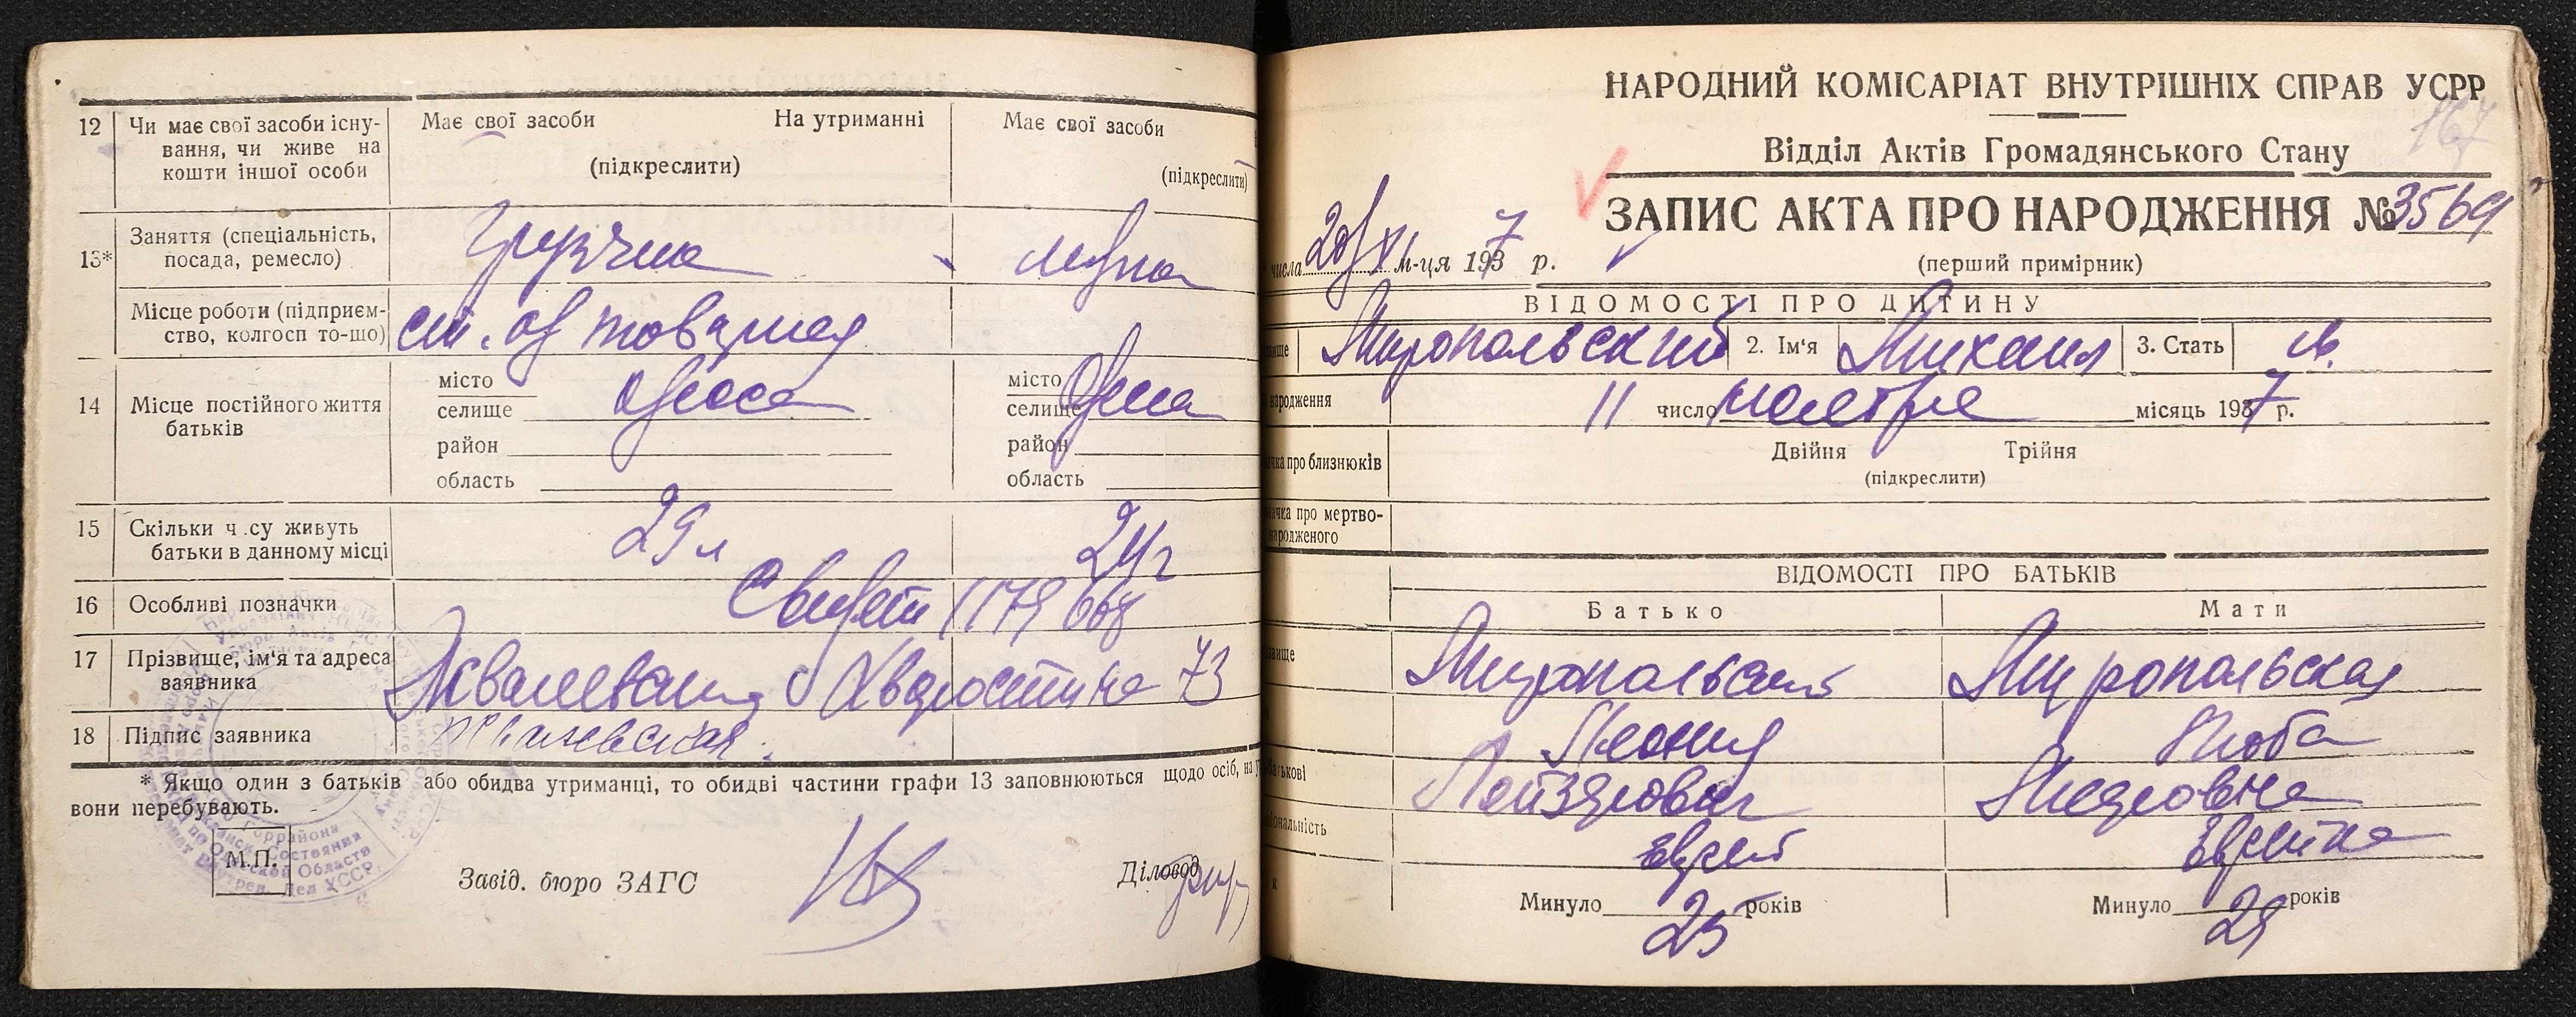 12 Чи має свої засоби існу-
вання, чи живе на
кошти іншої особи
Має свої засоби На утриманні
(підкреслити)
Має свої засоби
(підкреслити)
13* Заняття (спеціальність,
посада, ремесло)
Місце роботи (підприєм-
ство, колгосп то-що)
ст. од товарная
14 Місце постійного життя
батьків
місто
селище Одесса
район
область
місто
селище Одесса
район
область
15 Скільки ч су живуть
батьки в данному місці
29 л
24 г
16 Особливі позначки
Свидет 1179
17 Прізвище, ім'я та адреса
заявника
Хворостина 73
18 Підпис заявника
* Якщо один з батьків або обидва утриманні, то обидві частини графи 13 заповнюються щодо осіб, на
вони перебувають.
М.П.
Завід. бюро ЗАГС
Діловод
НАРОДНИЙ КОМІСАРІАТ ВНУТРІШНІХ СПРАВ УСРР
167
Відділ Актів Громадянського Стану
ЗАПИС АКТА ПРО НАРОДЖЕННЯ № 3569
числа 20/XI м-ця 1937 р.
(перший примірник)
ВІДОМОСТІ ПРО ДИТИНУ
Миропольский 2. Ім'я Михаил 3. Стать м.
народження 11 число ноября місяць 1937 р.
про близнюків
Двійня Трійня
(підкреслити)
про мертво-
народженого
ВІДОМОСТІ ПРО БАТЬКІВ
Батько Мати
Миропольский Миропольская
Леонид Люба
Лейзерович
Еврей Еврейка
Минуло 25 років Минуло 25 років